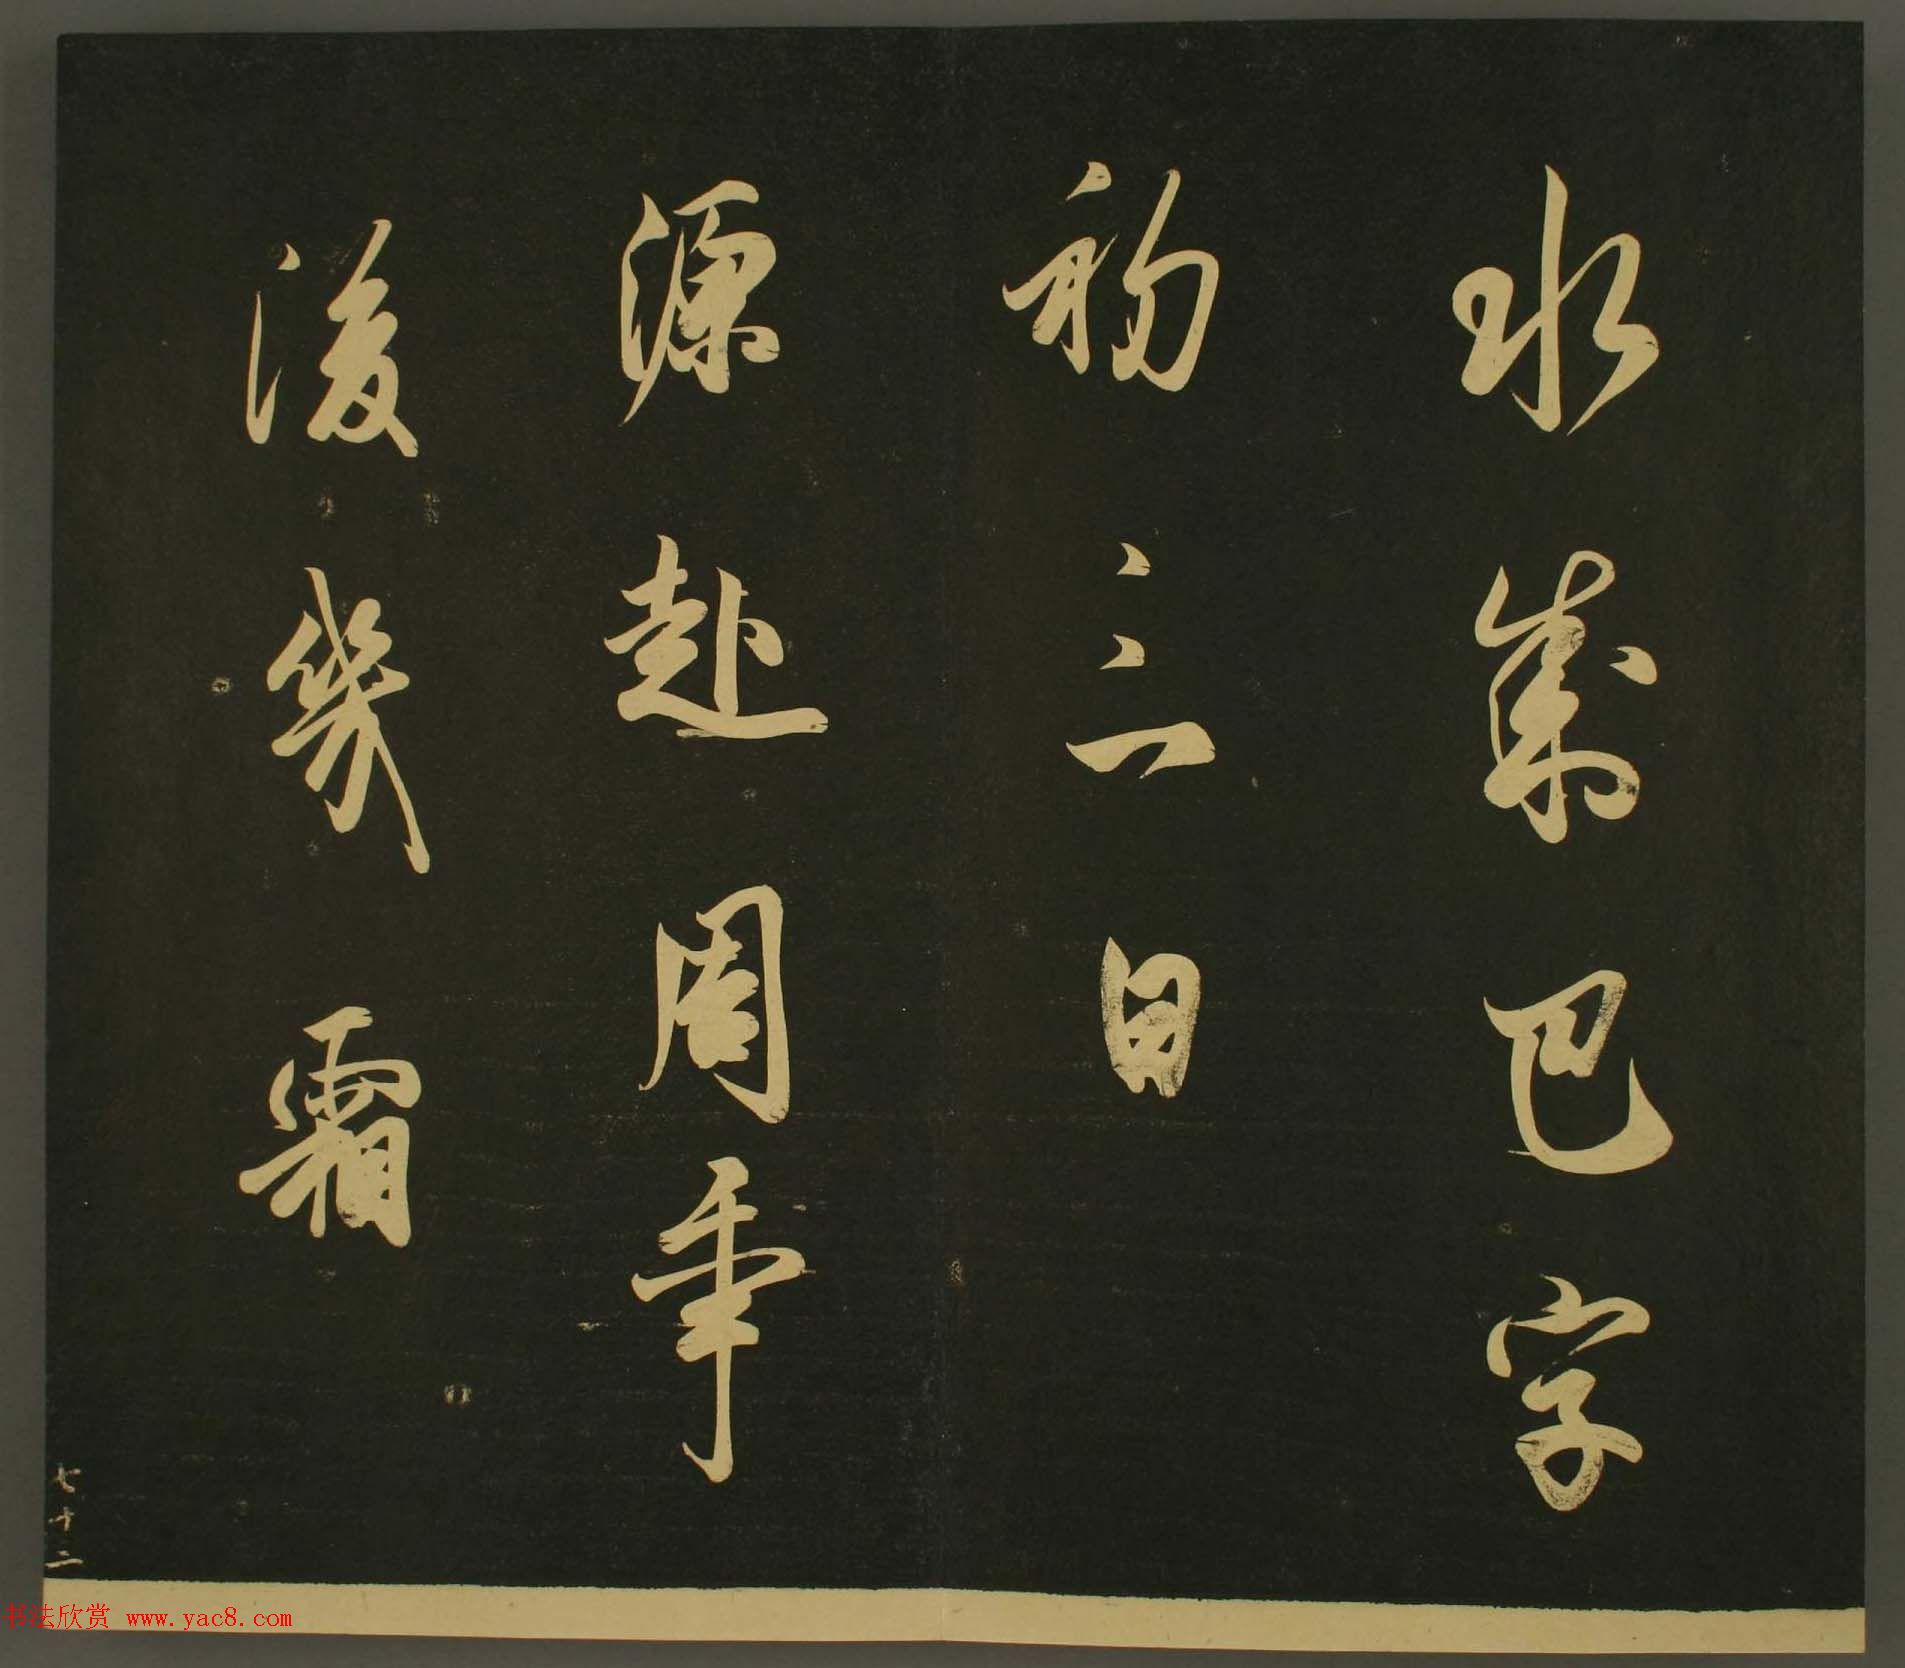 水巴字
初三日
源赴周年
後幾霜
七十二
书法欣赏 www.yac8.com